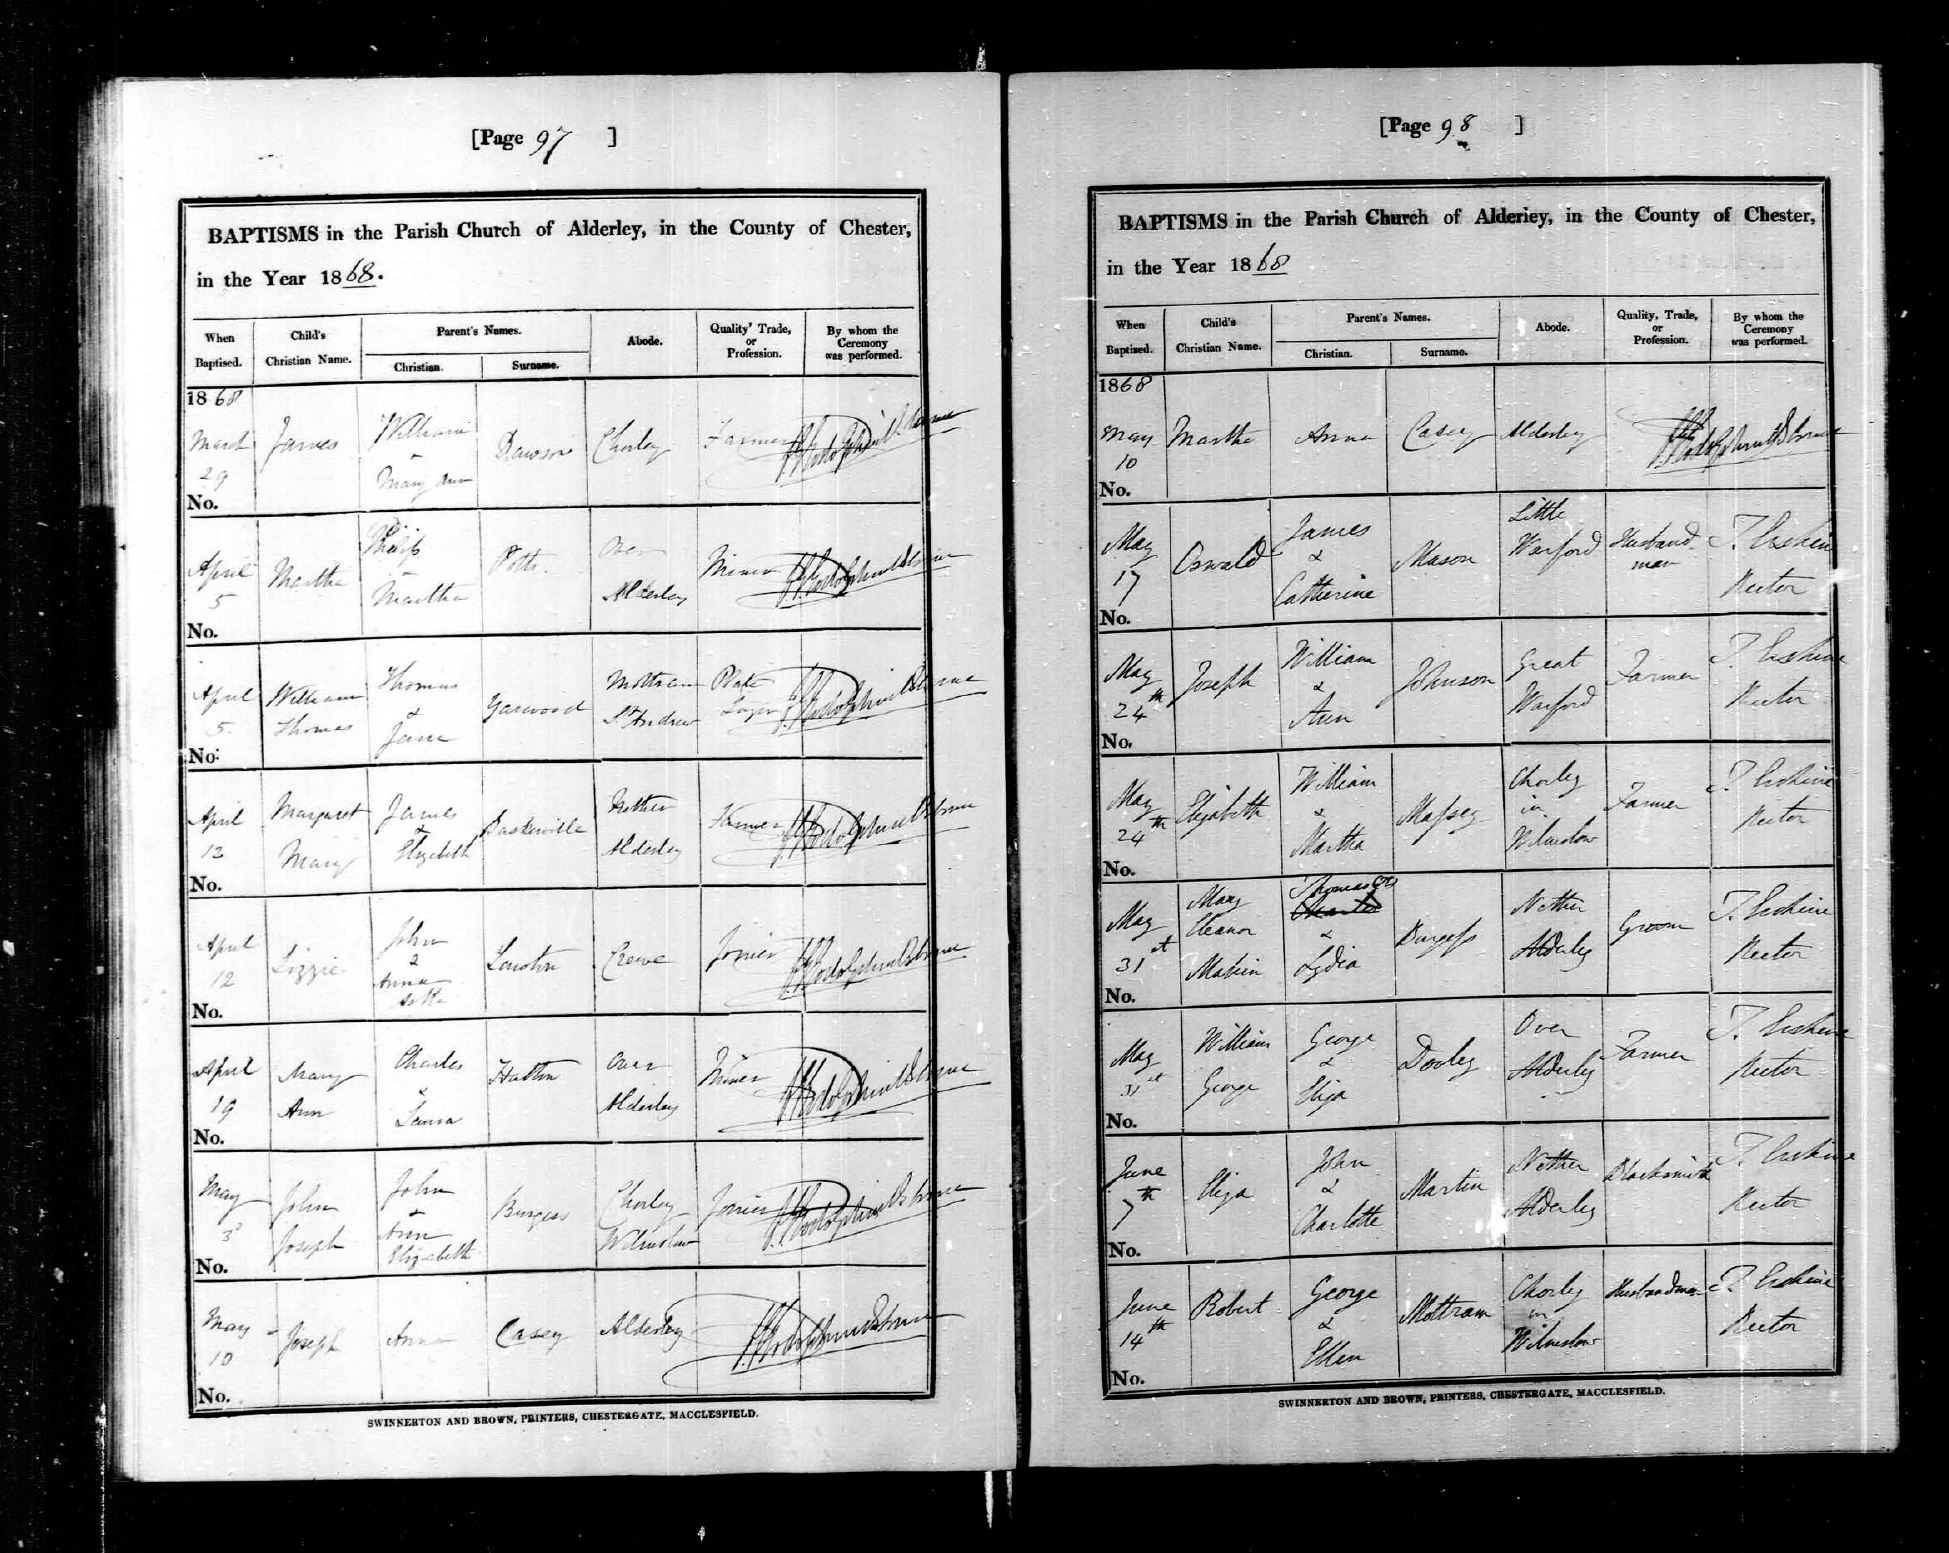 [Page 97 ]
BAPTISMS in the Parish Church of Alderley, in the County of Chester,
in the Year 1868.
When Baptised.
Child's Christian Name.
Parent's Names.
Christian.
Surname.
Abode.
Quality' Trade, or Profession.
By whom the Ceremony was performed.
1868
March 29 James William & Mary Ann Dawson Chorley Farmer
No.
April 5 Martha Philip & Martha Potts Over Alderley Miner
No.
April 5. William Thomas Thomas & Jane Yarwood Mottram St Andrew Plate Layer
No.
April 12 Margaret Mary James & Elizabeth Baskerville Nether Alderley Farmer
No.
April 12 Lizzie John & Anna Crewe Joiner
No.
April 19 Mary Ann Charles & Laura Hatton Over Alderley Miner
No.
May 3 John Joseph John & Ann Elizabeth Burgess Chorley Wilmslow Joiner
No.
May 10 Joseph Anna Casey Alderley
No.
SWINNERTON AND BROWN, PRINTERS, CHESTERGATE, MACCLESFIELD.
[Page 98 ]
BAPTISMS in the Parish Church of Alderley, in the County of Chester,
in the Year 1868
When Baptised.
Child's Christian Name.
Parent's Names.
Christian.
Surname.
Abode.
Quality, Trade, or Profession.
By whom the Ceremony was performed.
1868
May 10 Martha Anna Casey Alderley
No.
May 17 Oswald James & Catherine Mason Little Warford Husbandman T. Erskine Rector
No.
May 24th Joseph William & Ann Johnson Great Warford Farmer T. Erskine Rector
No.
May 24th Elizabeth William & Martha Massey Chorley in Wilmslow Farmer T. Erskine Rector
No.
May 31st Mary Eleanor Thomas & Lydia Burgess Nether Alderley Groom T. Erskine Rector
No.
May 31st William George George & Eliza Over Alderley Farmer T. Erskine Rector
No.
June 7th Eliza John & Charlotte Martin Nether Alderley Blacksmith T. Erskine Rector
No.
June 14th Robert George & Ellen Mottram Chorley in Wilmslow Husbandman T. Erskine Rector
No.
SWINNERTON AND BROWN, PRINTERS, CHESTERGATE, MACCLESFIELD.